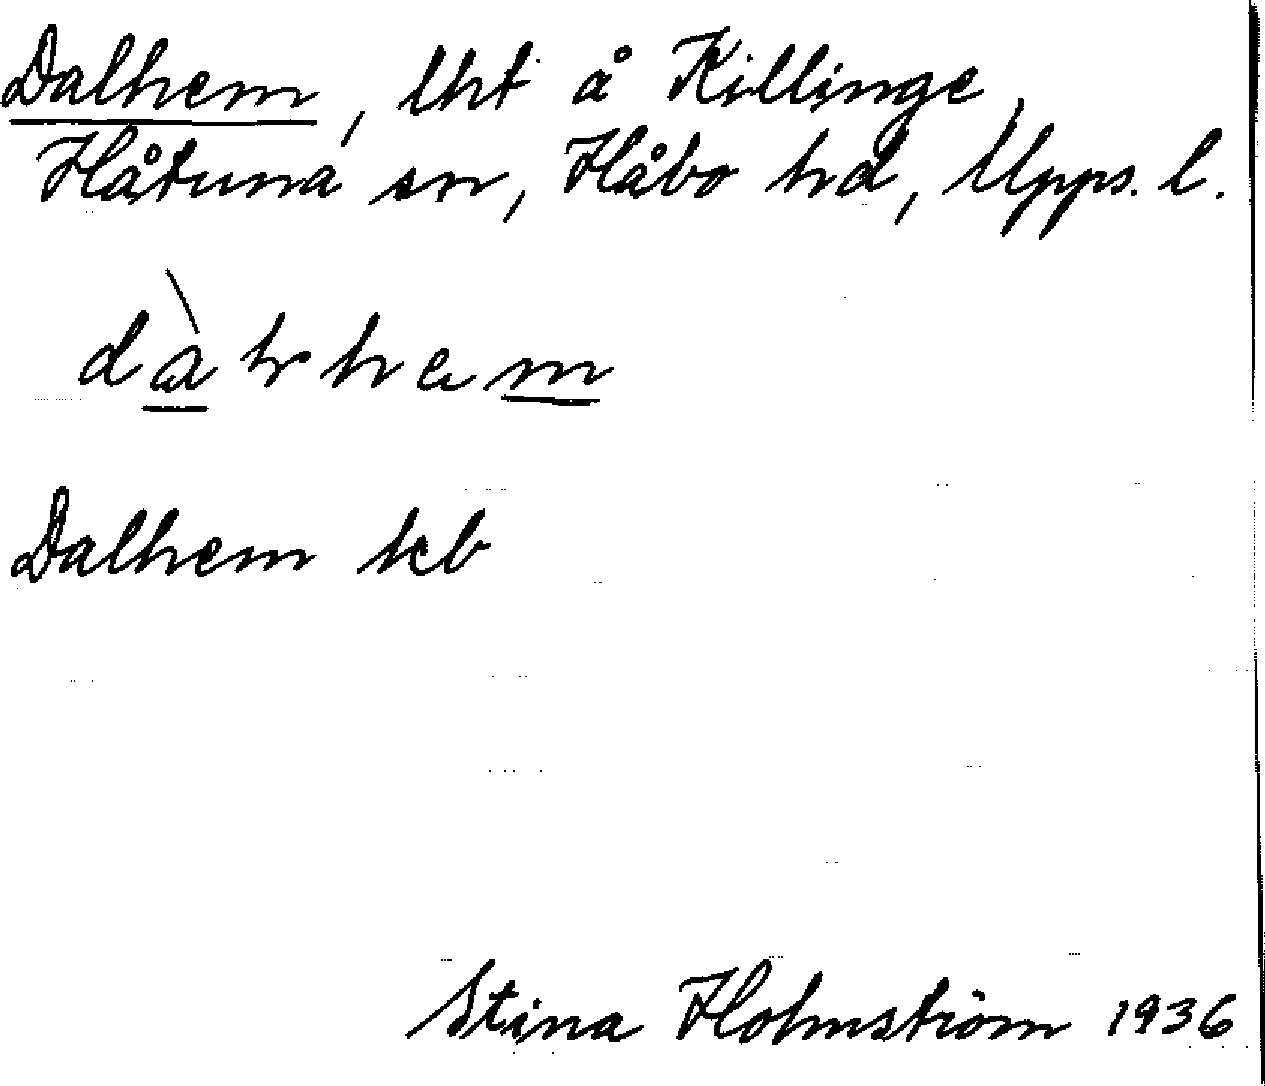 Dalhem, lht å Killinge,
Håtuna sn, Håbo hd, Upps. l.
Dalhem kb
Stina Holmström 1936